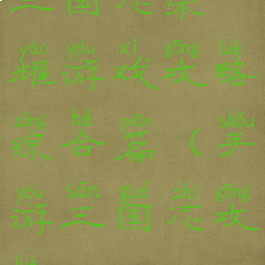 三国志荣
yào yóu xì gōng lüè
耀游戏攻略
zōng hé piān shǒu
综合篇（手
yóu sān guó zhì gōng
游三国志攻